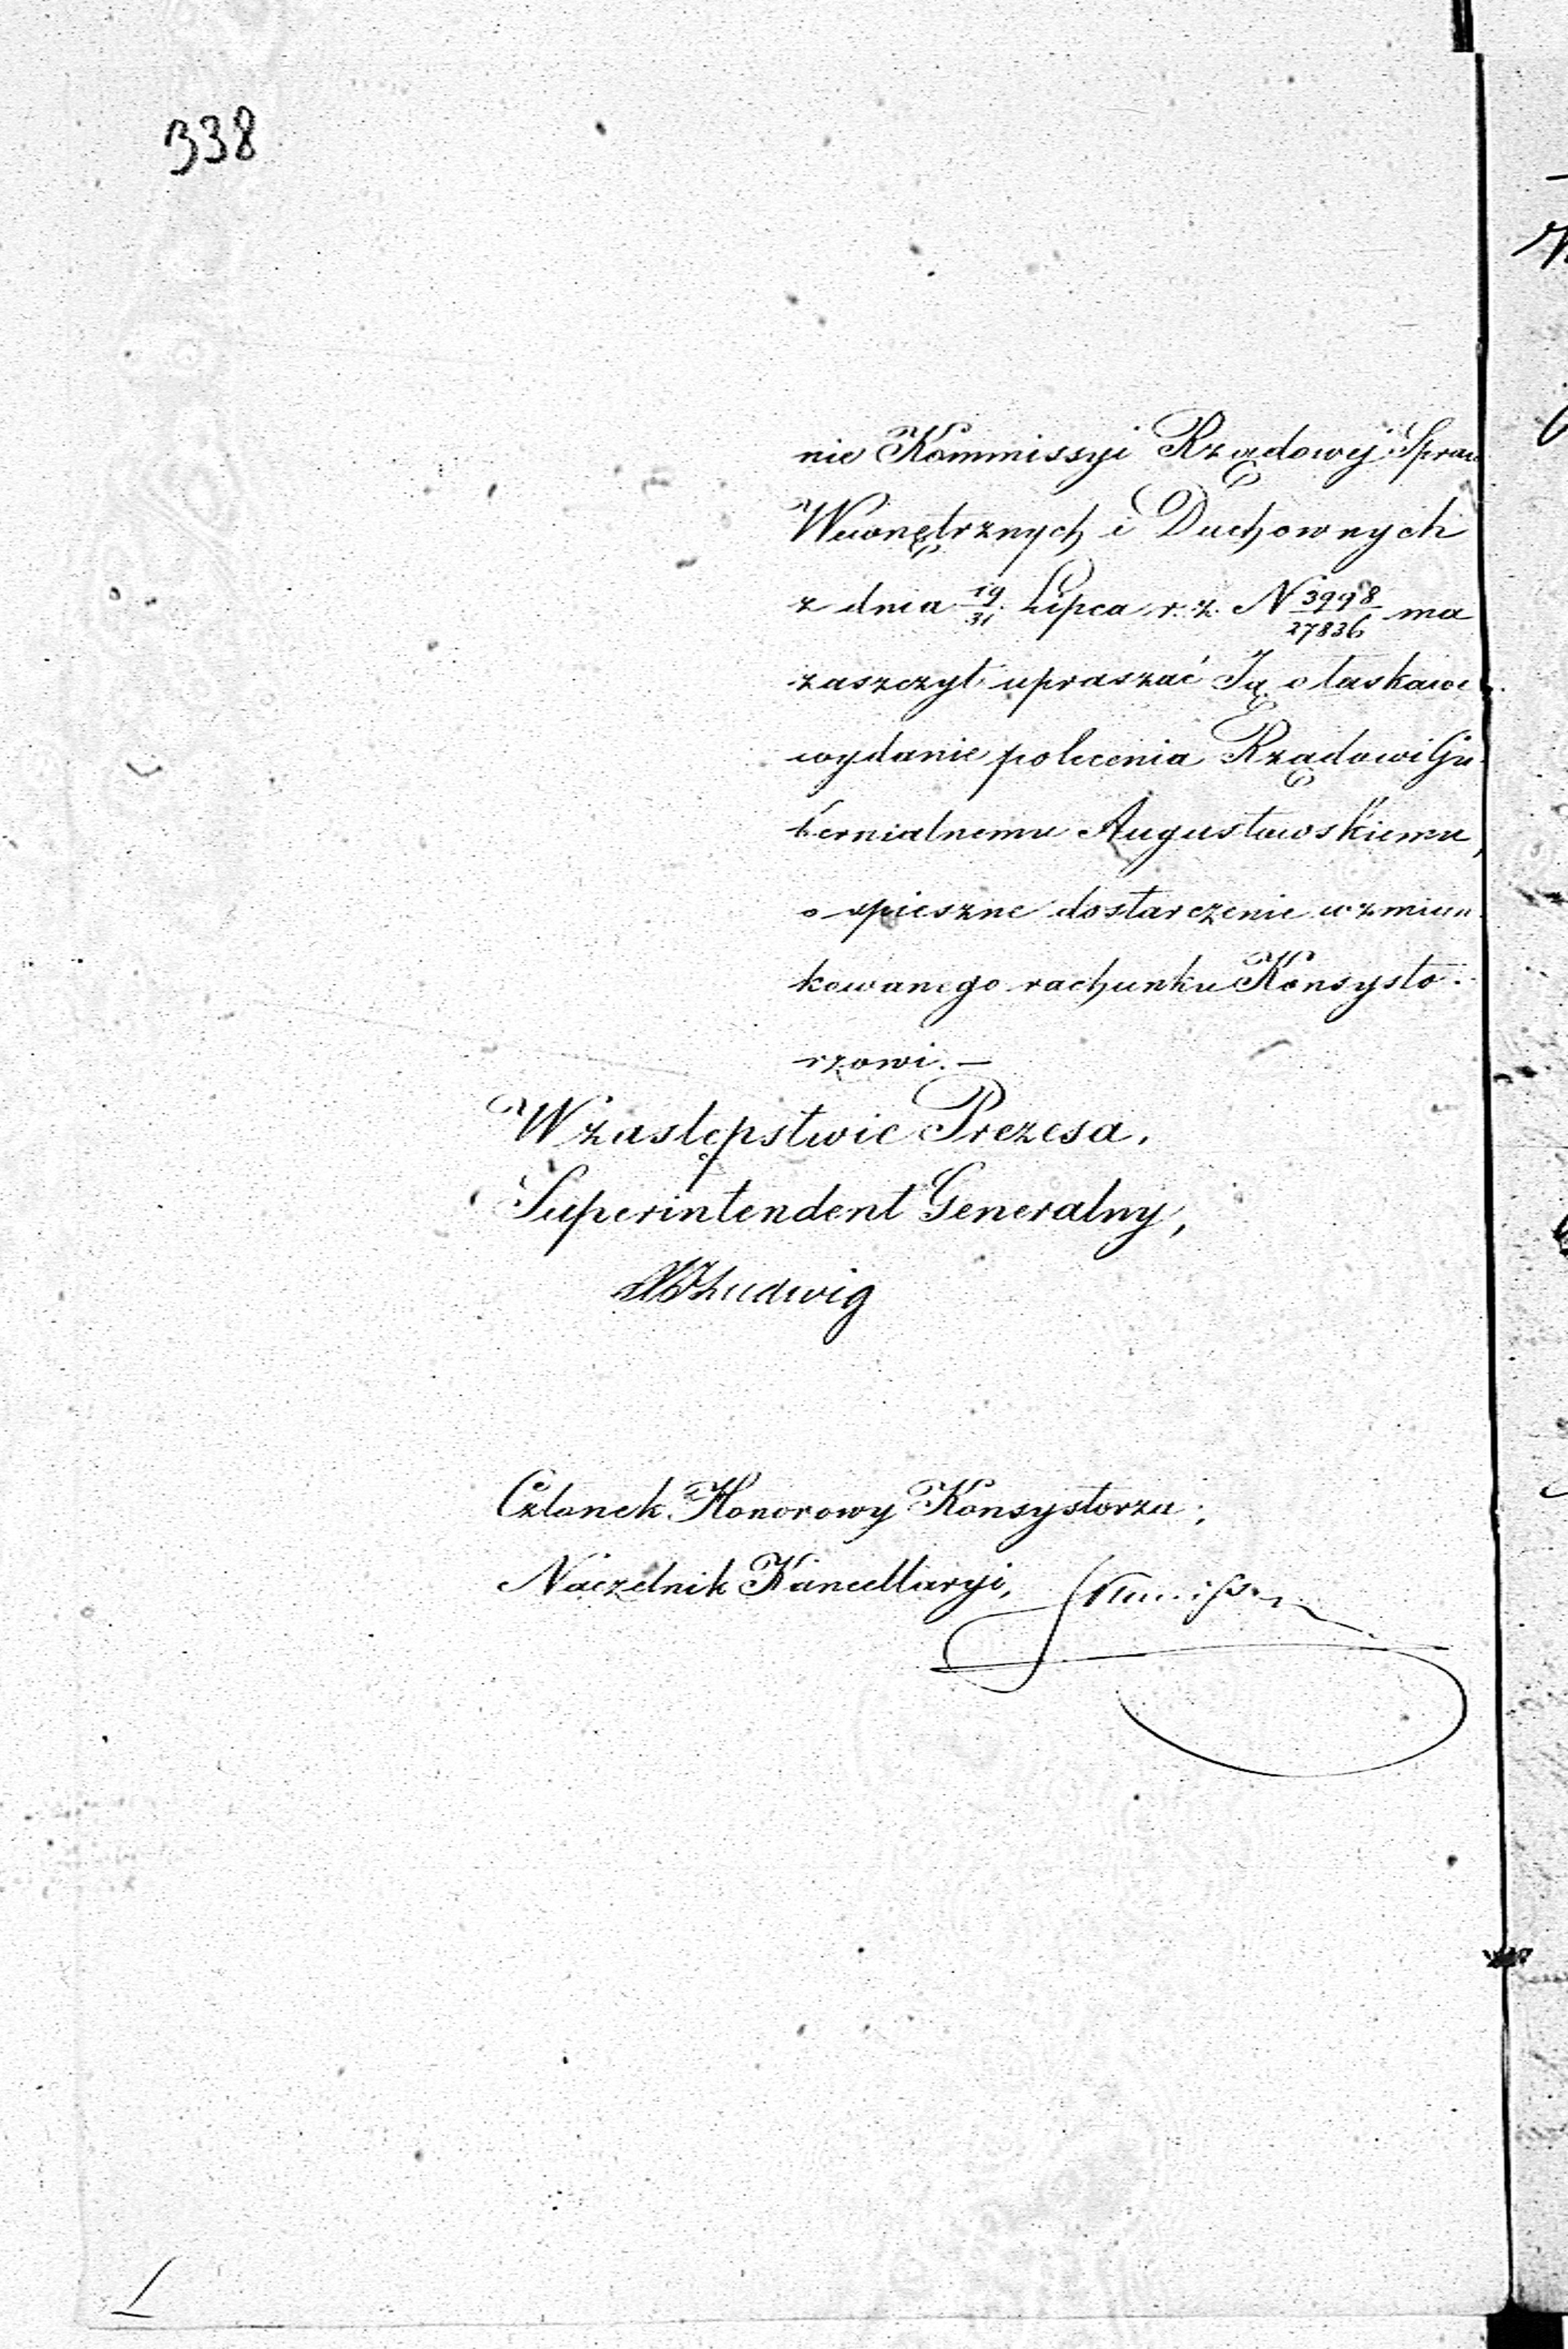 338
nie Kommissyi Rządowéj Spraw
Wewnętrznych i Duchownych
z dnia 19/31 Lipca r. z. N 3998/27836 ma
zaszczyt upraszać Ją o łaskawe
wydanie polecenia Rządowi Gu-
bernialnemu Augustowskiemu,
o spieszne dostarczenie wzmian-
kowanego rachunku Konsysto-
rzowi. —
W zastępstwie Prezesa,
Superintendent Generalny,
Ludwig
Członek Honorowy Konsystorza,
Naczelnik Kancellaryi,